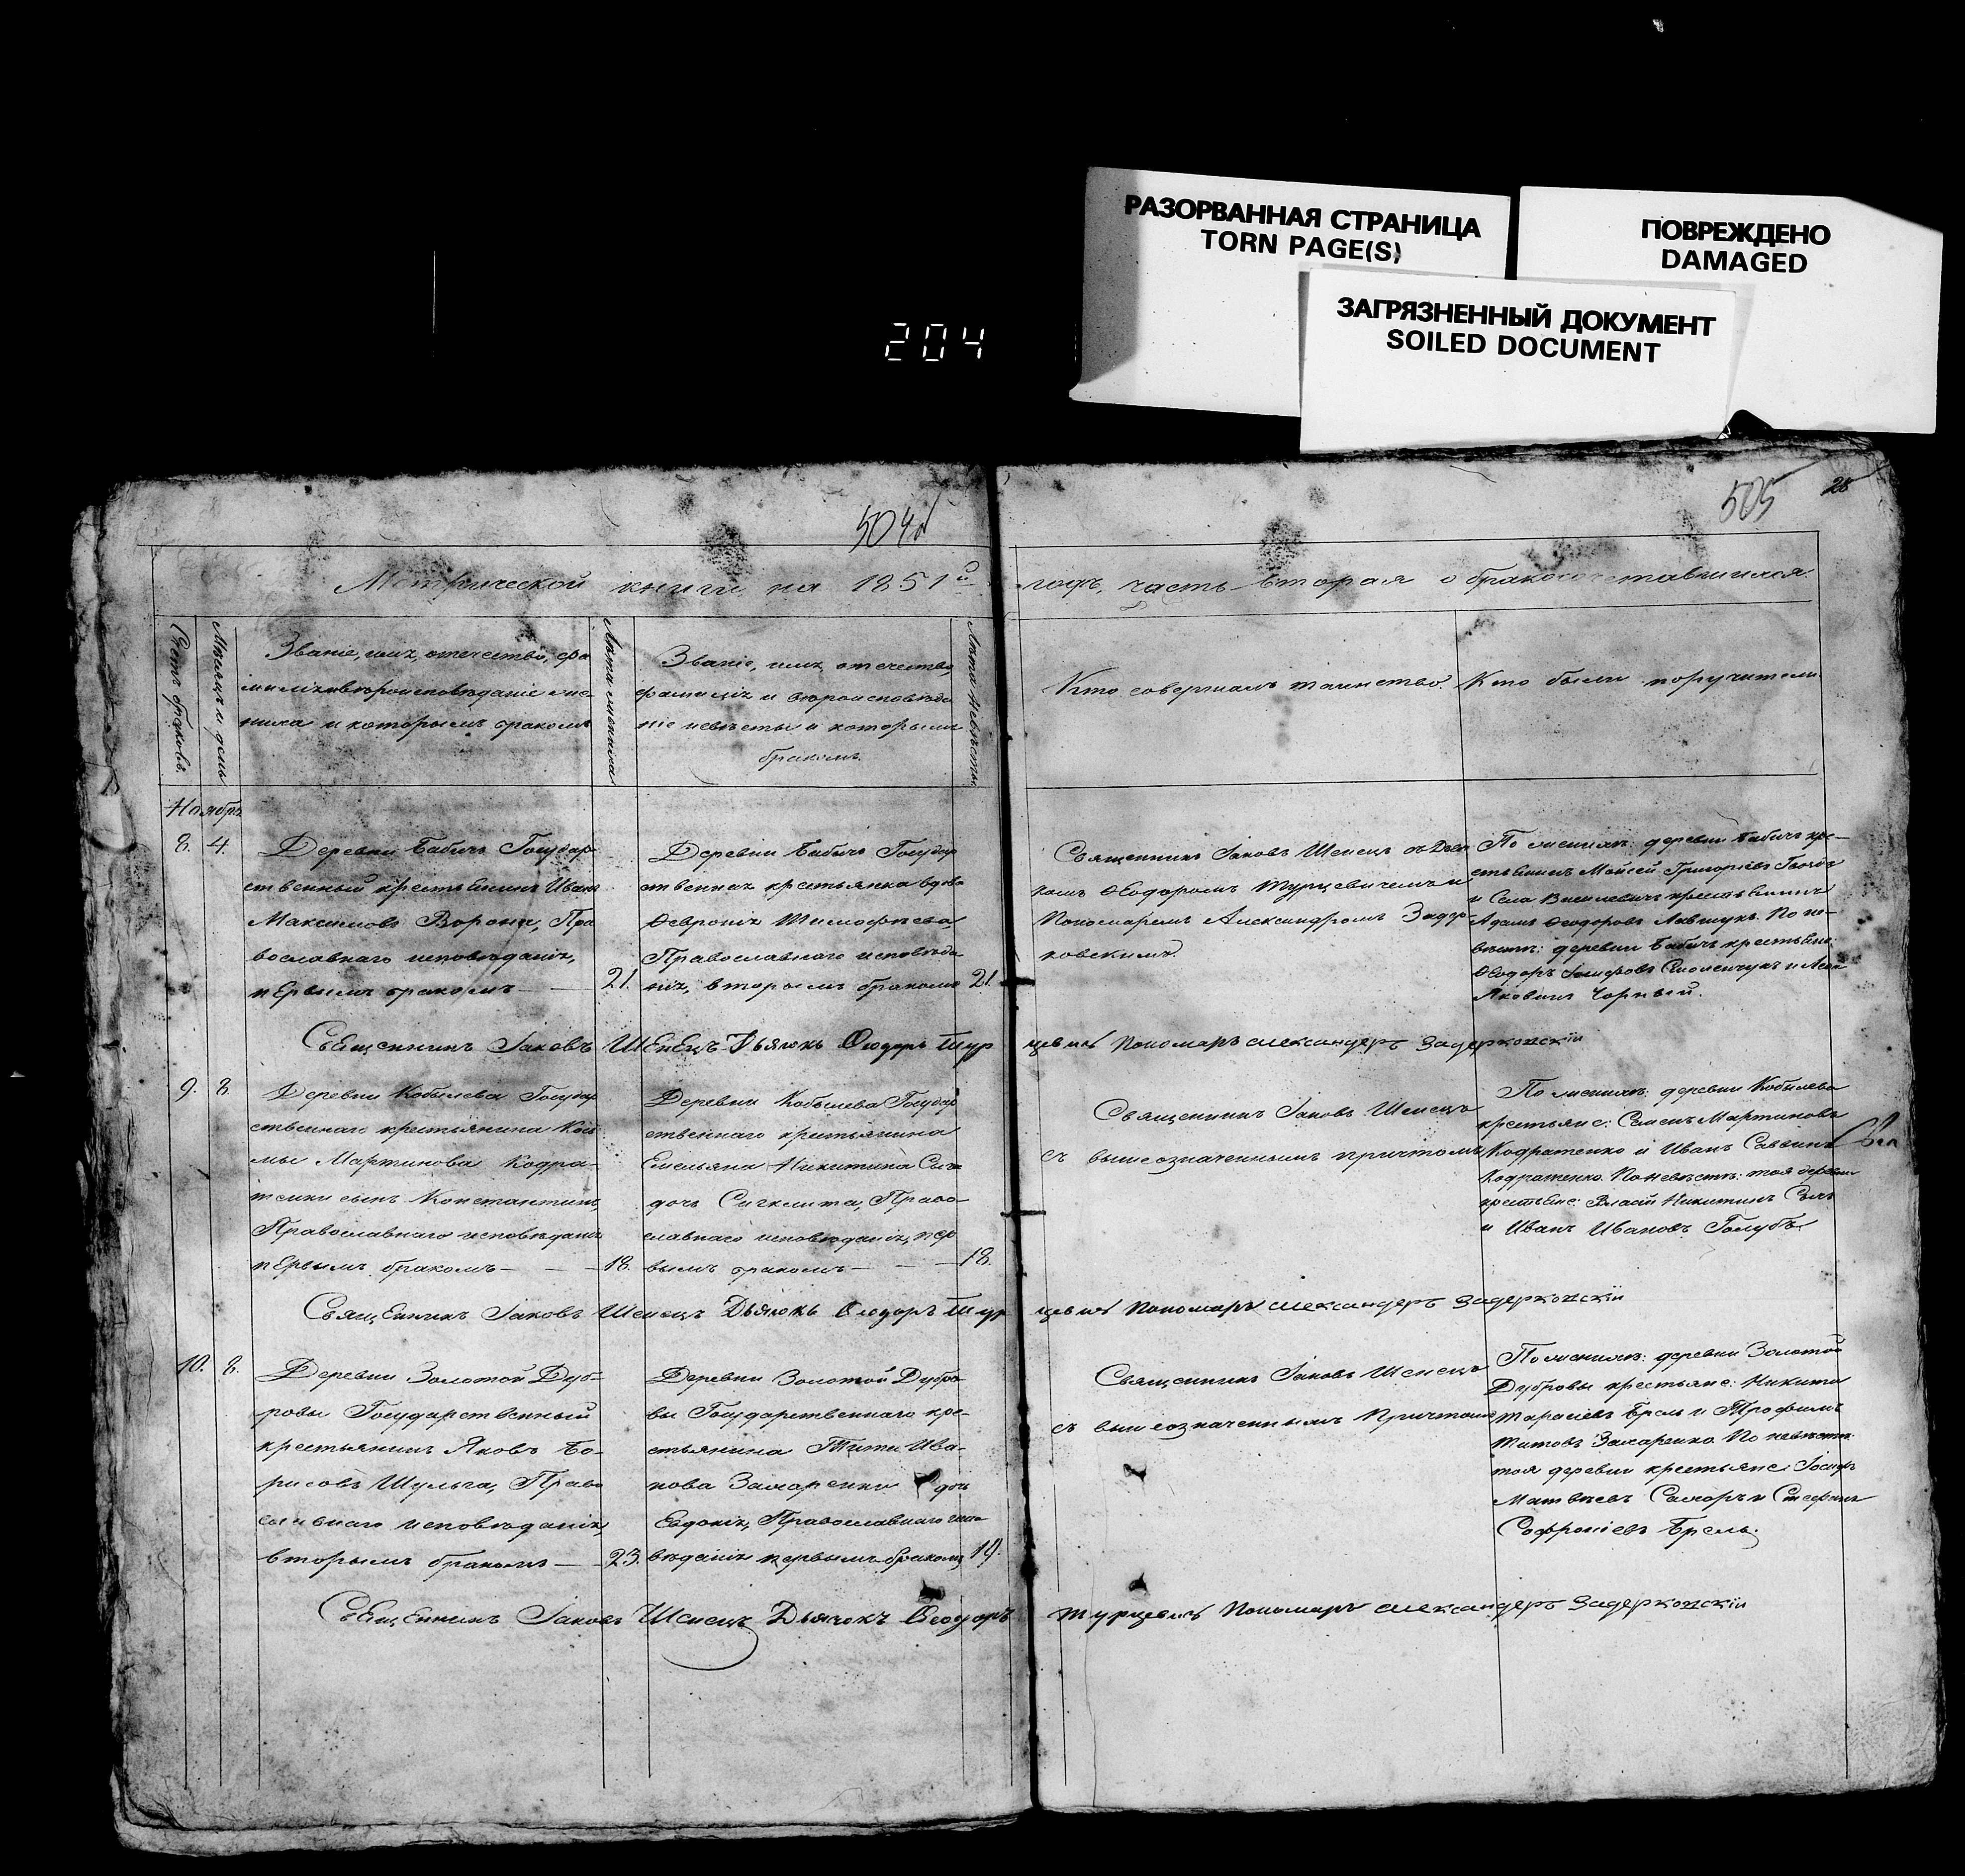 РАЗОРВАННАЯ СТРАНИЦА
TORN PAGE(S)
ПОВРЕЖДЕНО
DAMAGED
ЗАГРЯЗНЕННЫЙ ДОКУМЕНТ
SOILED DOCUMENT
204
504
505
Метрической книги на 1851й
годъ, часть вторая о бракосочетавшихся.
Счетъ браковъ.
Мѣсяцъ и день
Званіе, имя, отечество, фа
милія и вѣроисповѣданіе же
ниха и которымъ бракомъ
Лѣта жениха
Званіе, имя, отечество,
фамилія и вѣроисповѣда
ніе невѣсты и которымъ
бракомъ.
Лѣта невѣсты.
Кто совершалъ таинство.
Кто были поручители
Ноябрь
8. 4.
Деревни Бабичъ Государ
ственный крестьенинъ Иванъ
Максимовъ Ворона, Пра
вославнаго исповѣданія,
первымъ бракомъ
21.
Деревни Бабичъ Государ
ственная крестьянка вдова
Февронія Тимофѣева,
Православнаго исповѣда
нія, вторымъ бракомъ
21.
Священникъ Іаковъ Шенецъ съ Дья
комъ Ѳеодоромъ Турцевичемъ и
Пономаремъ Александромъ Задер
ковскимъ
По женихѣ: деревни Бабичъ кре-
стьенинъ Мойсей Григорьевъ
и Села Василевичъ крестьенинъ
Адамъ Ѳеодоровъ Левшукъ. По не-
вѣстѣ: деревни Бабичъ крестьяне:
Ѳеодоръ
Яковинъ Чорный.
Свещенникъ Іаковъ Шенецъ Дьячокъ Ѳеодоръ Тур
цевичъ Пономаръ Александеръ Задерковскій
9. 8.
Деревни Кобылева Государ
ственнаго крестьянина Коз
мы Мартинова Кодра-
тенки сынъ Константинъ,
Православнаго исповѣданія
первымъ бракомъ
18.
Деревни Кобылева Государ
ственнаго крестьянина
Емельяна Никитина
дочь Сигклита, Право
славнаго исповѣданія, пер
вымъ бракомъ
18.
Священникъ Іаковъ Шенецъ
съ вышеозначеннымъ причтомъ
По женихѣ: деревни Кобилева
крестьяне: Семенъ Мартиновъ
Кодратенко и Иванъ Саввинъ
Кодратенко. По невѣстѣ: тоя деревни
крестьене: Власій Никитинъ
и Иванъ Ивановъ Голубъ
Священникъ Іаковъ Шенецъ Дьячокъ Ѳеодоръ Тур
цевичъ Пономаръ Александеръ Задерковскій
10. 8.
Деревни Золотой Дуб-
ровы Государственный
крестьянинъ Яковъ Бо-
рисовъ Шульга, Право
славнаго исповѣданія,
вторымъ бракомъ
23.
Деревни Золотой Дубро-
вы Государственнаго кре-
стьянина Тита Ива-
нова Захаренки дочь
Евдокія, Православнаго испо
вѣданія первымъ бракомъ,
19.
Священникъ Іаковъ Шенецъ
съ вышеозначеннымъ Причтомъ
По женихѣ: деревни Золотой
Дубровы крестьяне: Никита
Тарасіевъ Брель и Трофимъ
Титовъ Захаренко. По невѣстѣ:
тоя деревни крестьяне: Іосифъ
Матвѣевъ и Стефанъ
Софроніевъ Брель.
Свещенникъ Іаковъ Шенецъ Дьячокъ Ѳеодоръ
Турцевичъ Пономаръ Александеръ Задерковскій